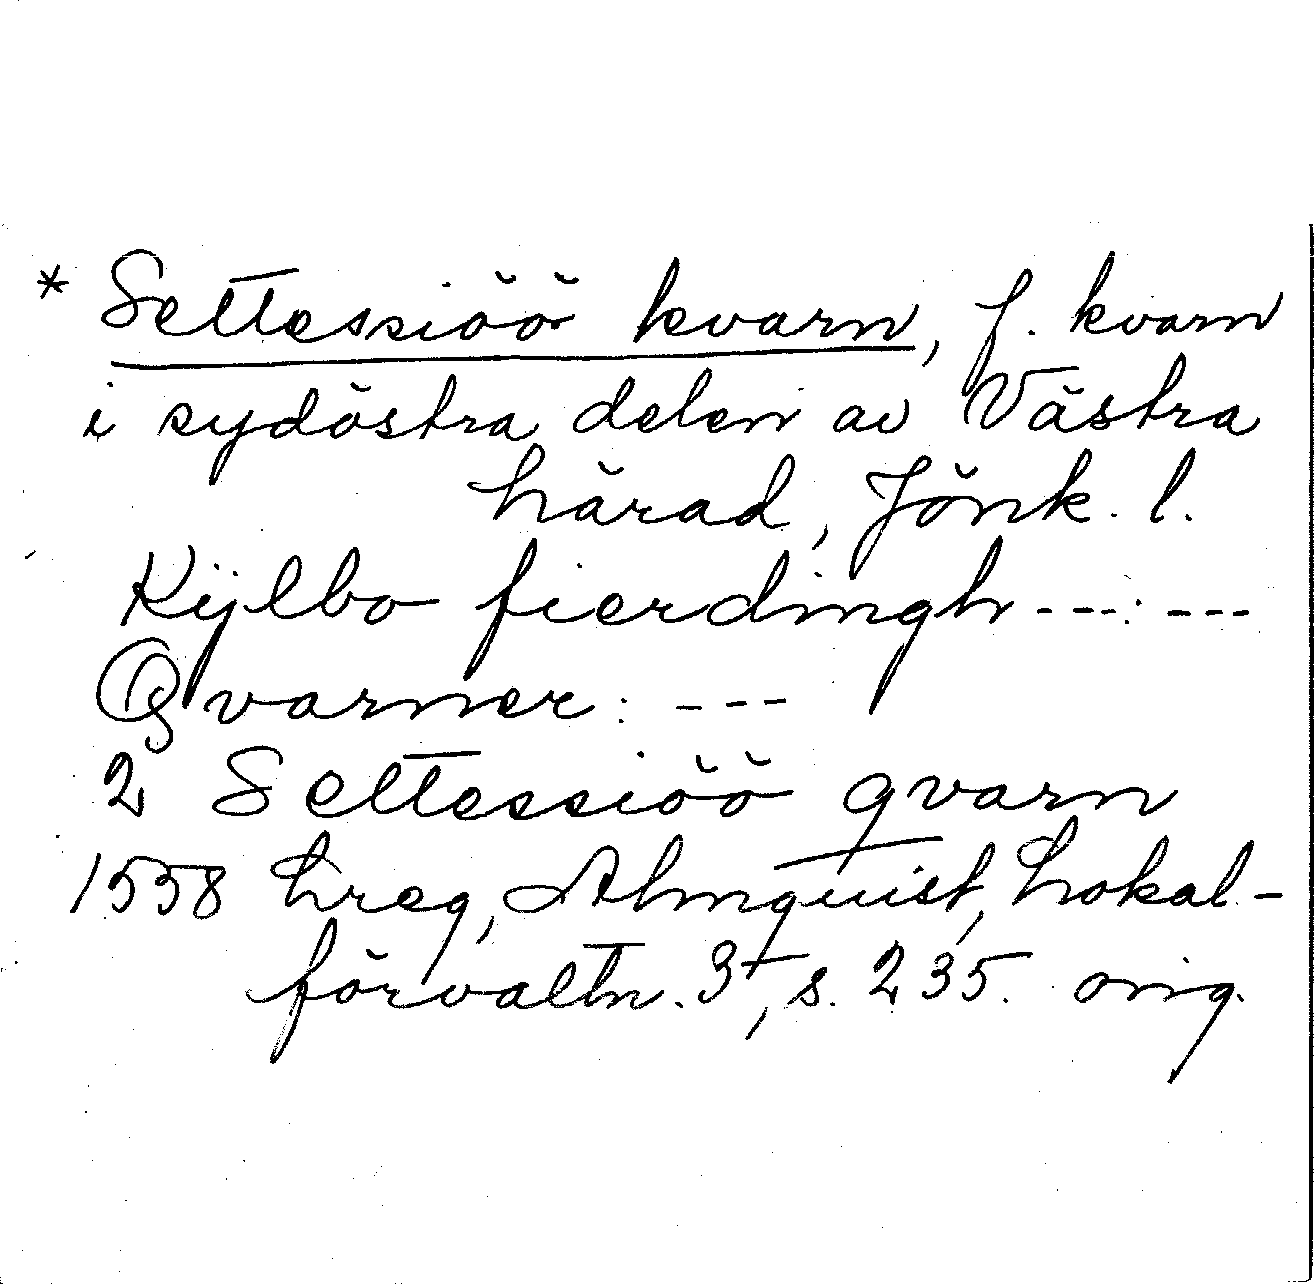 * Settessiöö kvarn, f. kvarn
i sydöstra delen av Västra
härad, Jönk. l.
Kÿlbo fierdingh ---:---
Qvarner: ---
2 Settessiöö qvarn
1558 hreg, Almquist, Lokal-
förvaltn. 3, s. 235. orig.